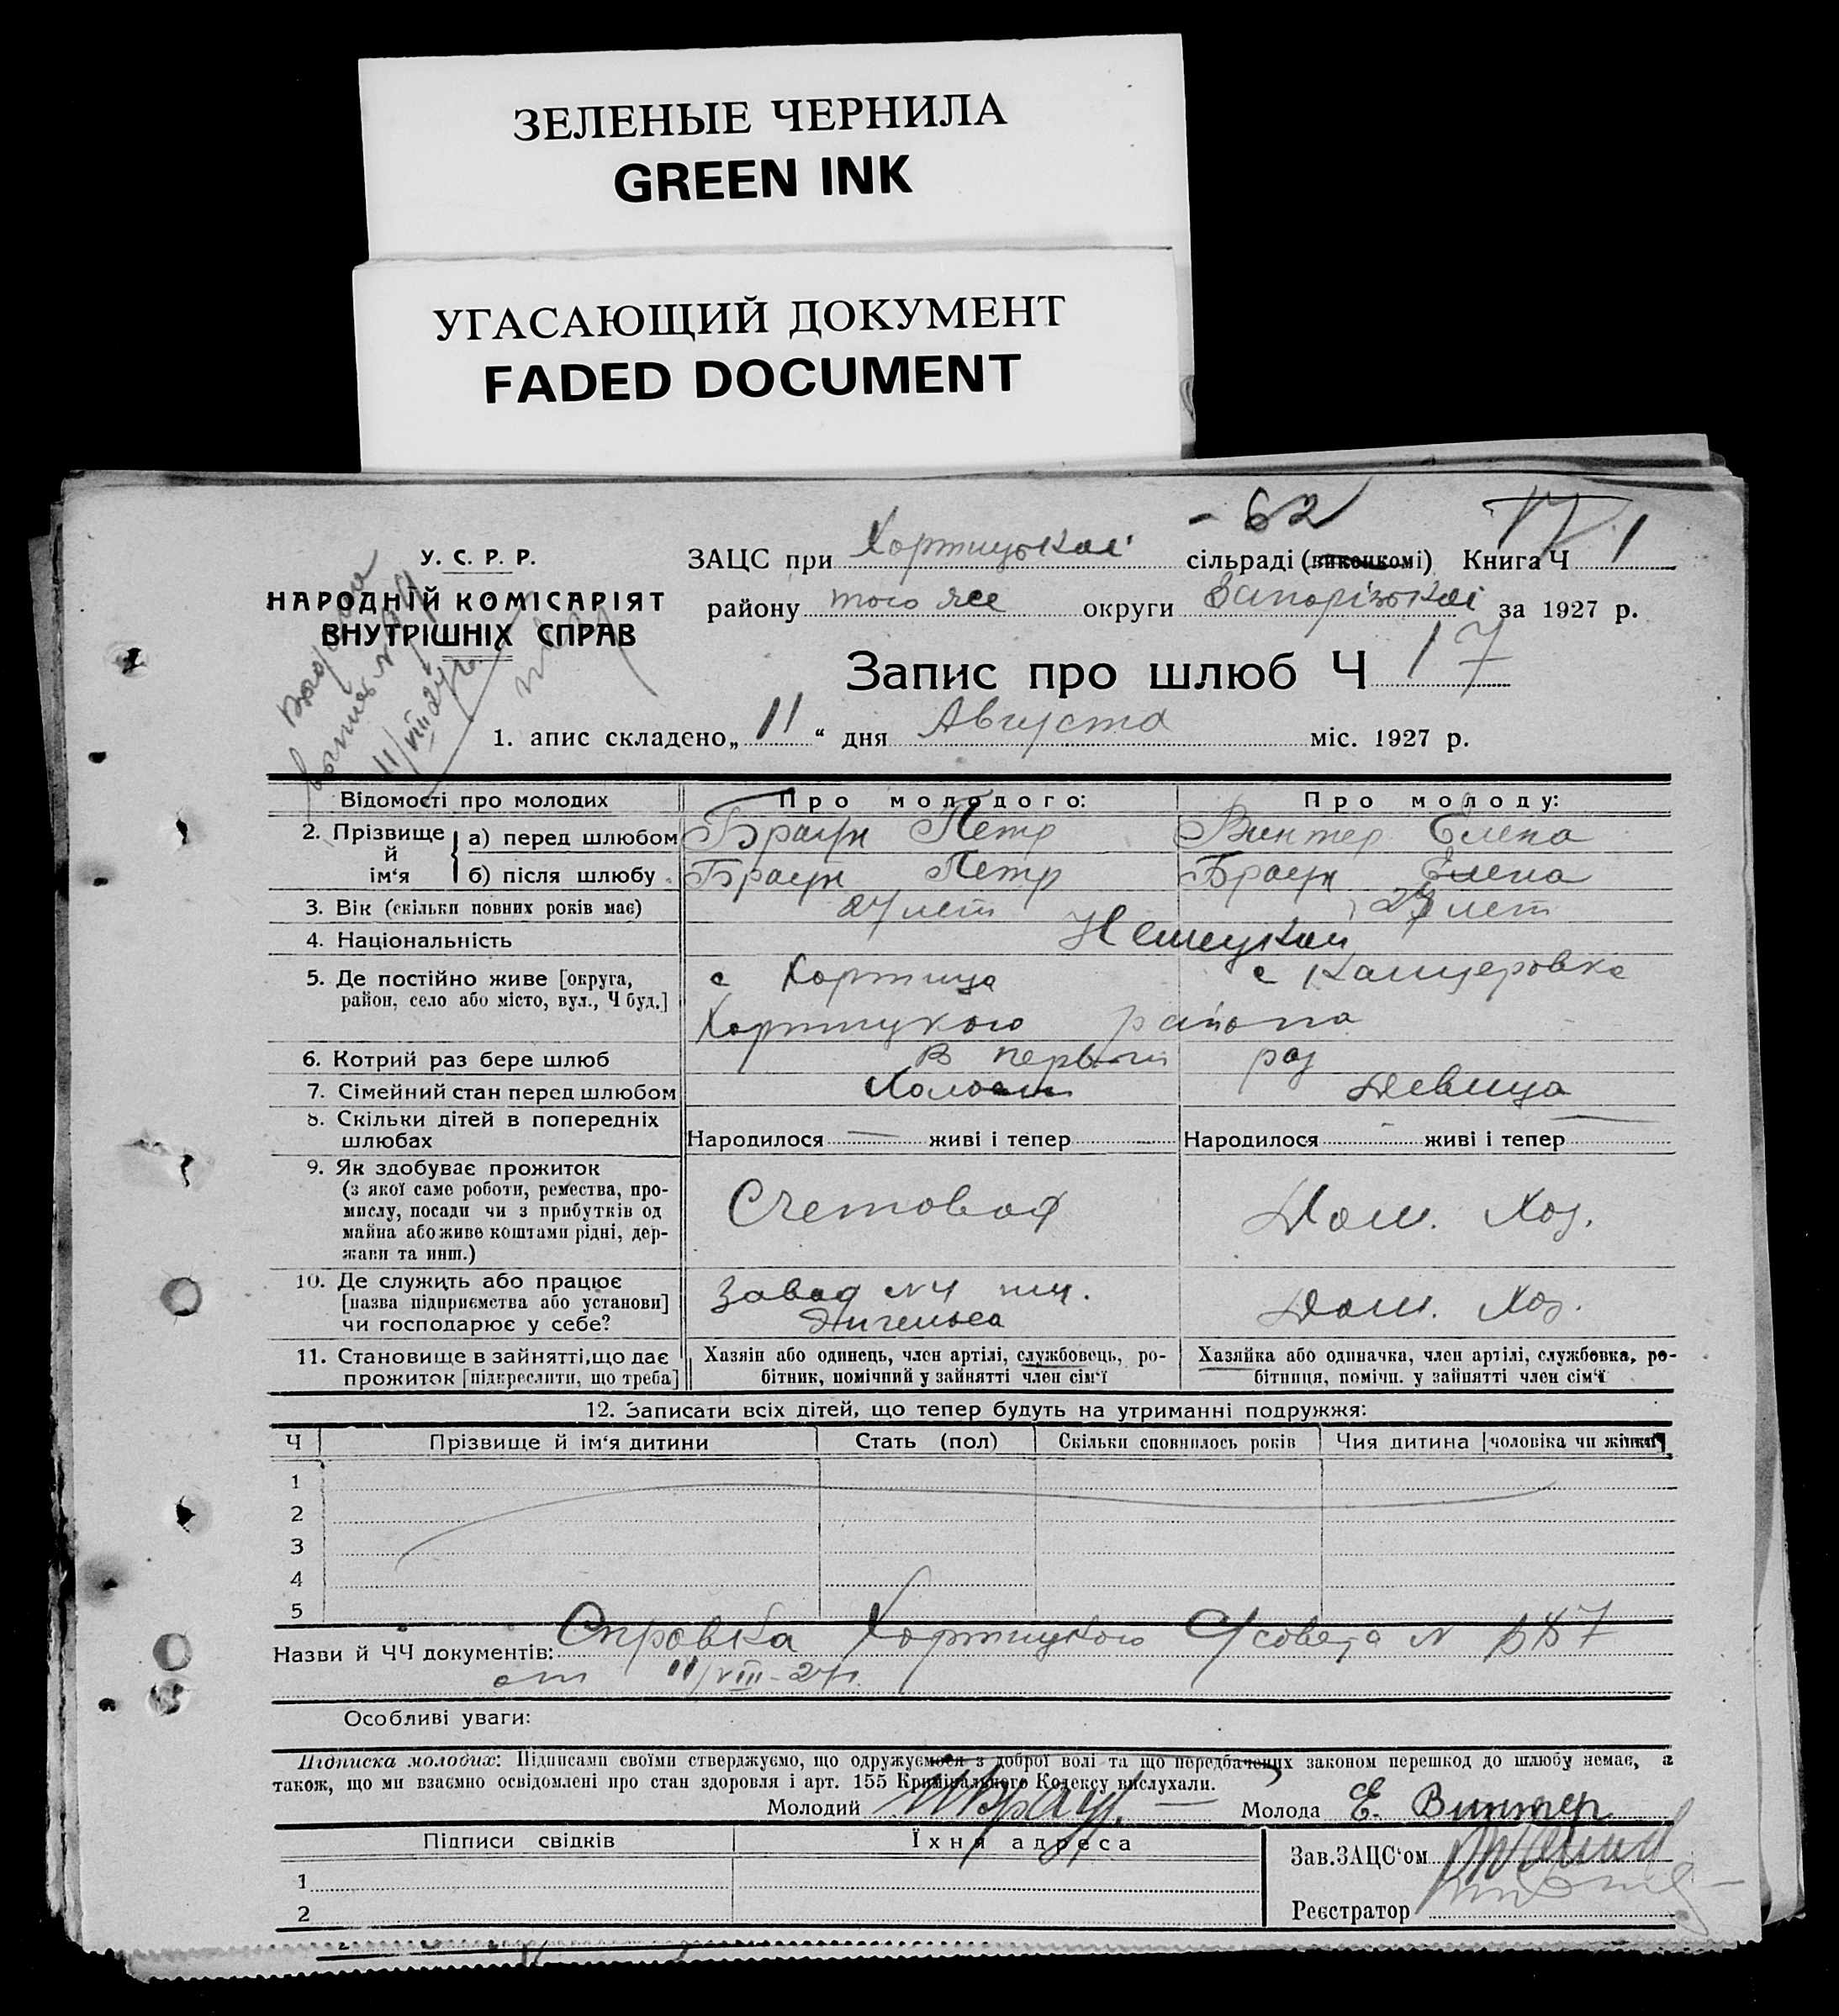 ЗЕЛЕНЫЕ ЧЕРНИЛА
GREEN INK
УГАСАЮЩИЙ ДОКУМЕНТ
FADED DOCUMENT
- 62
У. С. Р. Р.
НАРОДНІЙ КОМІСАРІЯТ
ВНУТРІШНІХ СПРАВ
ЗАЦС при Хортицькій сільраді (виконкомі) Книга Ч 1
району того же округи Запорізькій за 1927 р.
Запис про шлюб Ч 17
1. апис складено „ 11 “ дня Августа міс. 1927 р.
11/VIII 27 г.
Відомості про молодих Про молодого: Про молоду:
2. Прізвище й ім‘я а) перед шлюбом Браун Петр Винтер Елена
б) після шлюбу Браун Петр Браун Елена
3. Вік (скільки повних років має) 27 лет лет
4. Національність
5. Де постійно живе [округа, с Хортица с Канцеровке
район, село або місто, вул., Ч буд.]
Хортицкого района
6. Котрий раз бере шлюб В первый раз
7. Сімейний стан перед шлюбом Холост Девица
8. Скільки дітей в попередніх
шлюбах Народилося — живі і тепер Народилося - живі і тепер —
9. Як здобуває прожиток
(з якої саме роботи, ремества, про-
мислу, посади чи з прибутків од Счетовод Дом. Хоз.
майна або живе коштами рідні, дер-
жави та инш.)
10. Де служить або працює Завод №4 им. Дом. Хоз.
[назва підприємства або установи] Энгельса
чи господарює у себе?
11. Становище в зайнятті, що дає Хазяїн або одинець, член артілі, службовець, ро- Хазяйка або одиначка, член артілі, службовка, ро-
прожиток [підкреслити, що треба] бітник, помічний у зайнятті член сім‘ї бітниця, помічн. у зайнятті член сім‘ї
12. Записати всіх дітей, що тепер будуть на утриманні подружжя:
Ч Прізвище й ім‘я дитини Стать (пол) Скільки сповнилось років Чия дитина [чоловіка чи жінки]
1
2
3
4
5
Назви й ЧЧ документів: Справка Хортицкого С/совета №
от 11/VIII-27г.
Особливі уваги:
Підписка молодих: Підписами своїми стверджуємо, що одружуємося з доброї волі та що передбачених законом перешкод до шлюбу немає, а
також, що ми взаємно освідомлені про стан здоровля і арт. 155 Кримінального Кодексу вислухали.
Молодий Браун Молода Е. Винтер
Підписи свідків Їхня адреса
Зав.ЗАЦС‘ом
1
Реєстратор
2